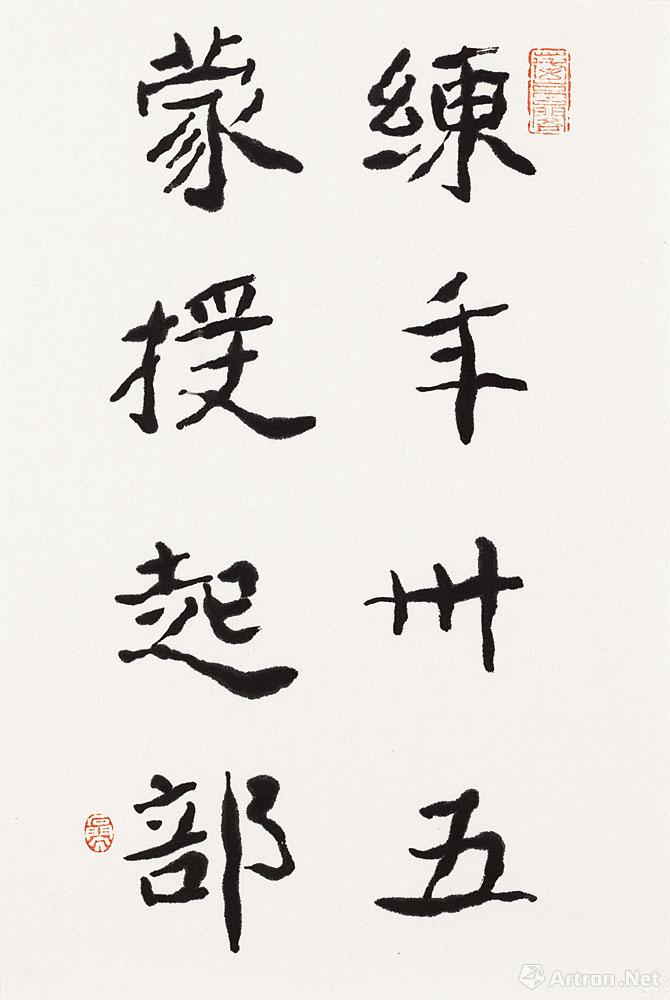 練年卅五
蒙授起部
Artron.Net